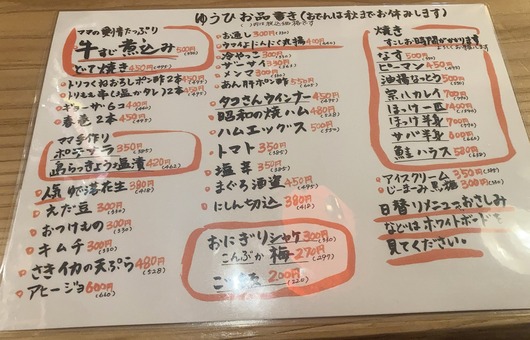 ゆうひお品書き(おでんは秋までお休みします)
( )内は税込価格です
ママの愛情たっぷり
牛すじ煮込み 500円(550)
どて焼き 450円(495)
トリつくねおろしポン酢2本 450円(495)
ギョーザ6コ 400円(440)
春巻2本 450円(495)
ママ手作り
ポテトサラダ 350円(385)
島らっきょう塩漬 420円(462)
人気ゆで落花生 380円(418)
えだ豆 300円(330)
おつけもの 300円(330)
キムチ 300円(330)
さきイカの天ぷら 480円(528)
アヒージョ 600円(660)
お通し 300円(330)
ウマイよにんにく丸揚 410円
冷やっこ 300円
ニーサイ 330円
メンマ 300円
あん肝ポン酢
タコさんウインナー 450円(495)
昭和の焼ハム 480円(528)
ハムエッグス 500円(550)
トマト 350円(385)
塩辛 350円(385)
まぐろ酒盗 450円(495)
にしん切込 380円(418)
おにぎりシャケ 300円(330)
こんぶか梅 270円(297)
200円(220)
焼き
すこしお時間がかかります
なす 500円(550)
ピーマン 450円(495)
油揚なっとう 500円(550)
宗八カレイ 700円(770)
ほっけ一匹 1400円
ほっけ半身 700円(770)
サバ半身 600円(660)
鮭ハラス 580円(638)
アイスクリーム 350円(385)
じーまーみ黒糖 300円(330)
日替りメニューおさしみ
などはホワイトボードを
見てください。